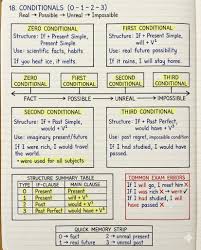 18. CONDITIONALS (0-1-2-3)
Real → Possible → Unreal → Impossible
ZERO CONDITIONAL
Structure: If + Present Simple, Present Simple.
Use: scientific facts, habits
If you heat ice, it melts.
FIRST CONDITIONAL
Structure: If + Present Simple, will + V¹
Use: real future possibility
If it rains, I will stay home.
ZERO CONDITIONAL
FIRST CONDITIONAL
SECOND CONDITIONAL
THIRD CONDITIONAL
FACT → POSSIBLE → UNREAL → IMPOSSIBLE
SECOND CONDITIONAL
Structure: If + Past Simple, would + V¹
Use: imaginary present/future
If I were rich, I would travel the world.
• were used for all subjects
THIRD CONDITIONAL
Structure: If + Past Perfect, would have + V³
Use: past regret, impossible condition
If I had studied, I would have passed.
STRUCTURE SUMMARY TABLE
TYPE IF-CLAUSE MAIN CLAUSE
0 Present Present
1 Present will + V¹
2 Past would + V¹
3 Past Perfect would have + V³
COMMON EXAM ERRORS
If I will go, I
If I was rich ✗ were ✓
If I had studied, I will have passed ✗
QUICK MEMORY STRIP
0 → fact
1 → real future
2 → unreal present
3 → unreal past